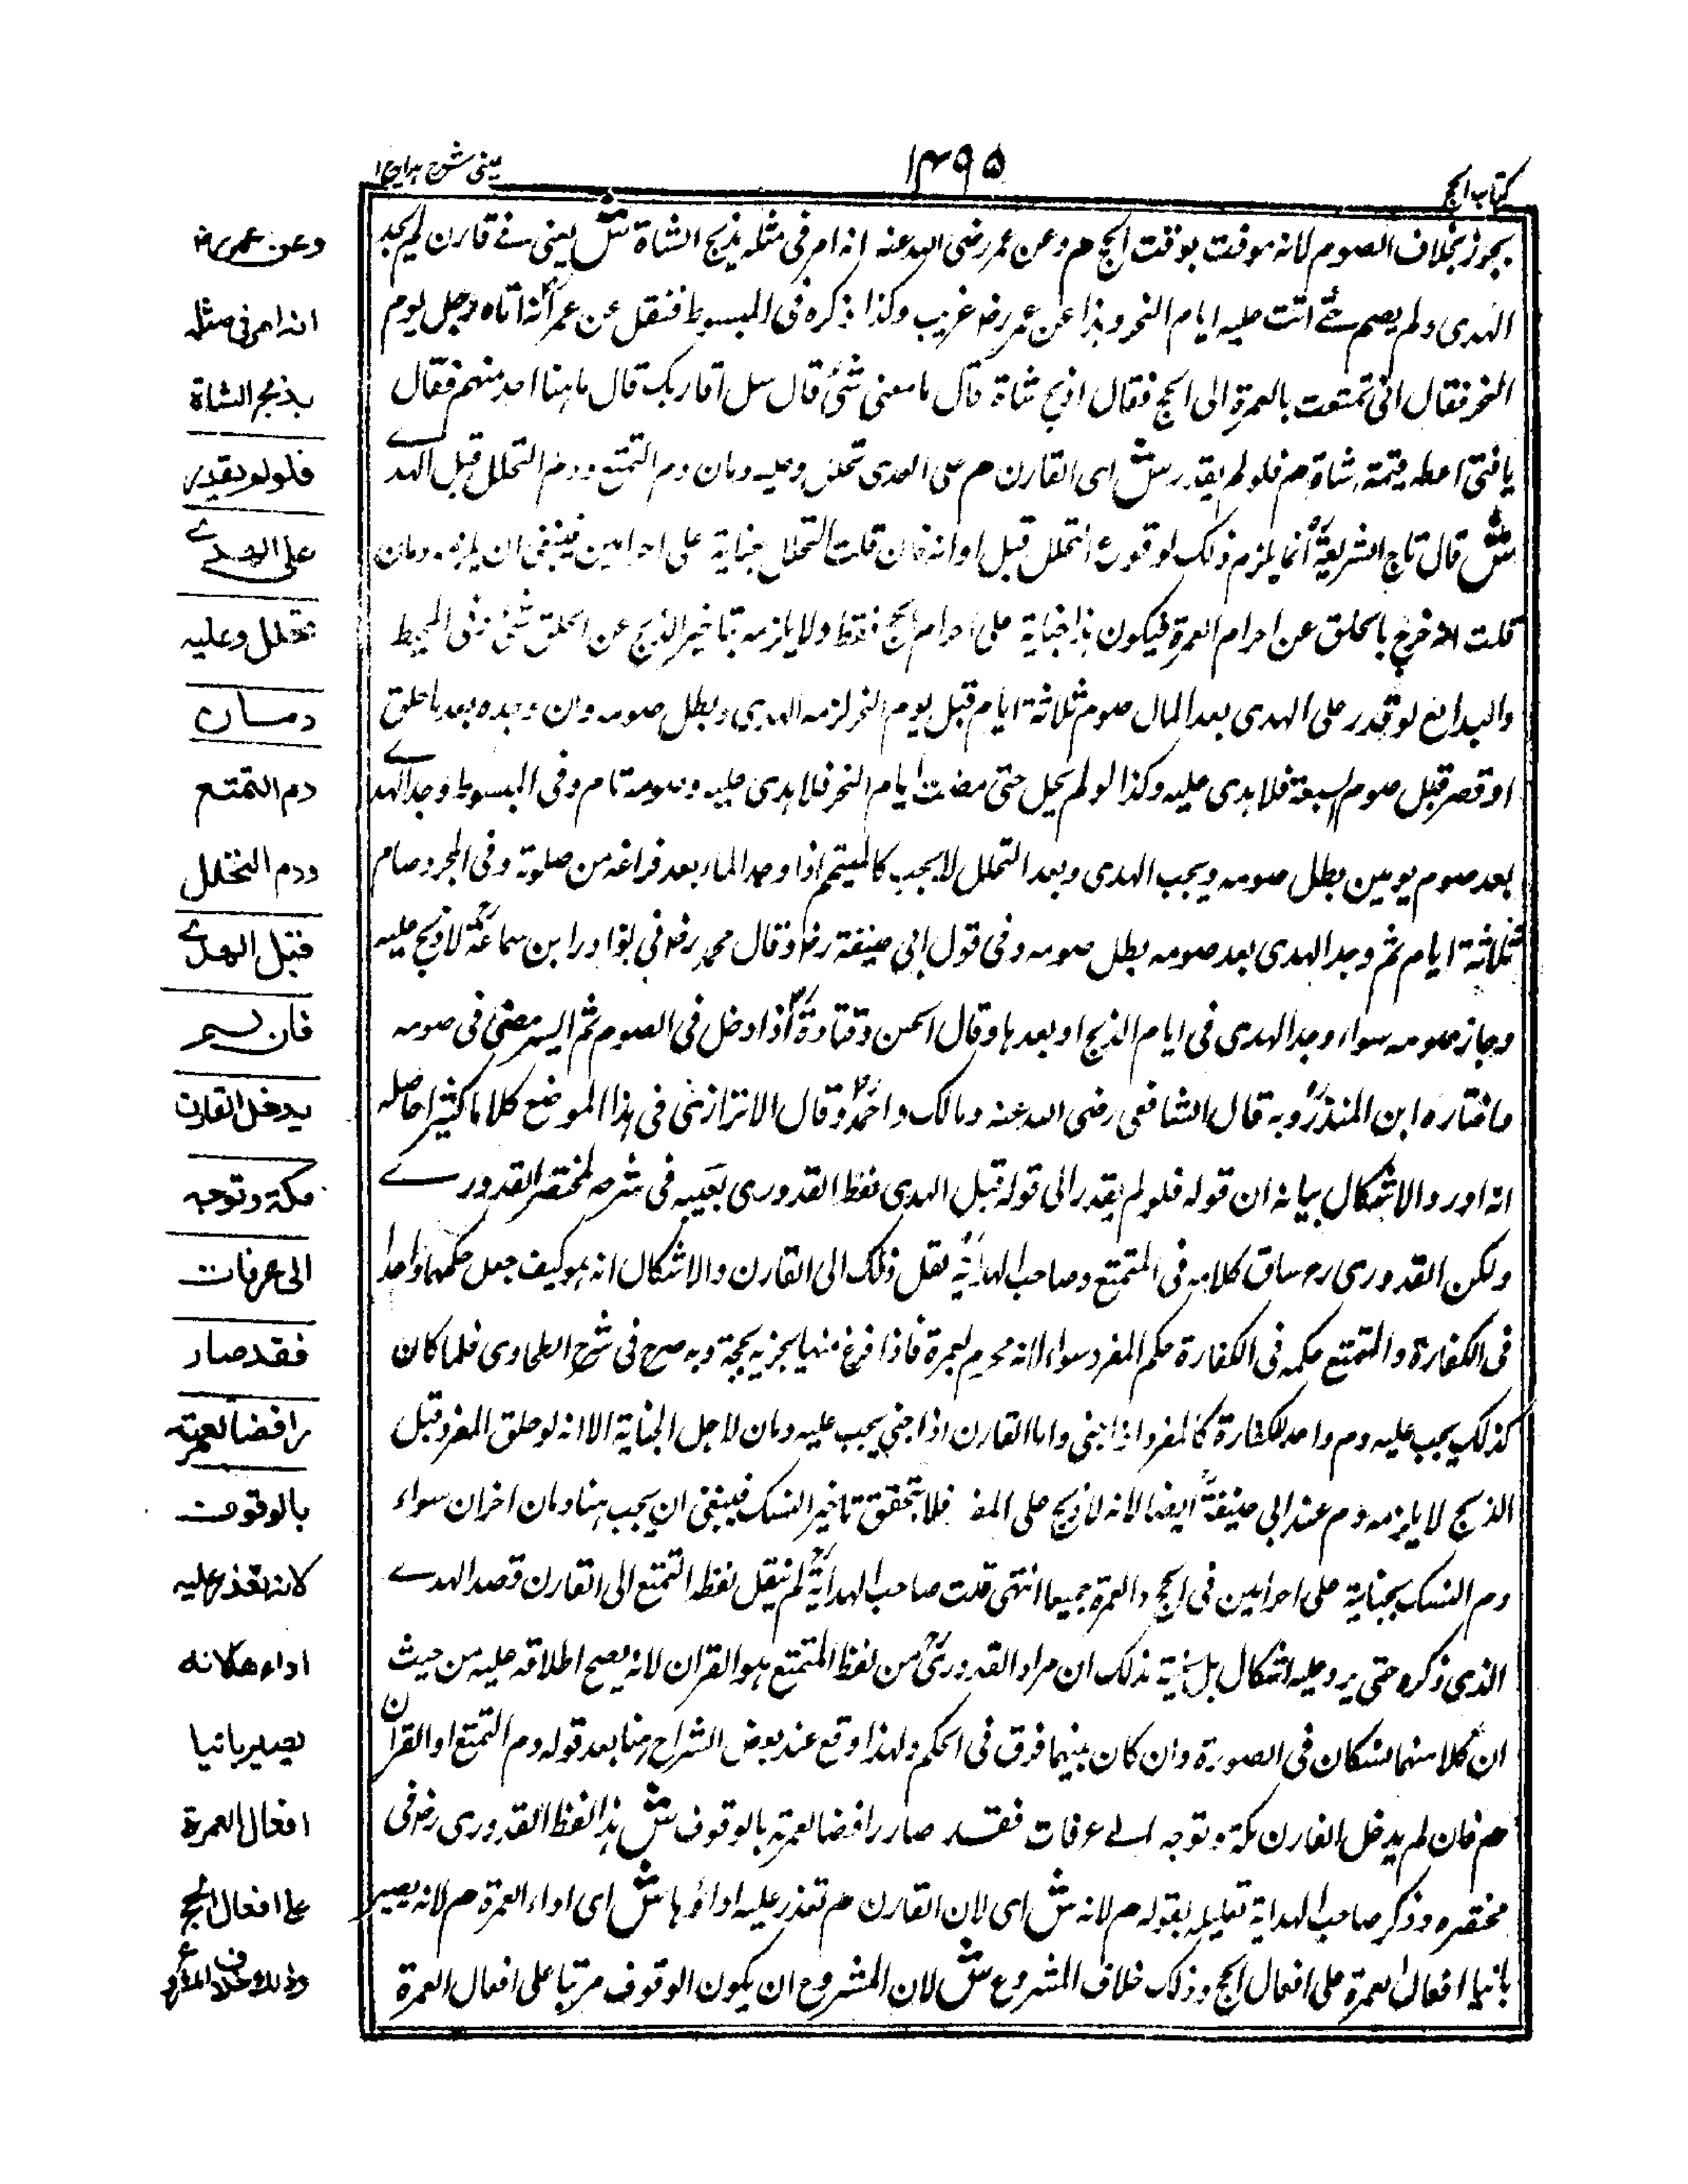 كتاب الحج
١٤٩٥
عيني شرح هداية ج١
يجوز بخلاف الصوم لانه موقت بوقت الحج هم وعن عمر رضى الله عنه انه امر فى مثله بذبح الشاة ش يعنى فے قارن لم يجد
الهدى ولم يصم حتے اتت عليه ايام النحر وهذا عن عمر رض غريب وكذا ذكره فى المبسوط فنقل عن عمر انه اتاه رجل يوم
النحر فقال انى تمتعت بالعمرة الى الحج فقال اذبح شاة قال ما معى شئ قال سل اقاربك قال ما هنا احد منهم فقال
يا فتى اعطه قيمة شاة هم فلو لم يقدر ش اى القارن هم على الهدى تحلل وعليه دمان دم التمتع ودم التحلل قبل الهدے
ش قال تاج الشريعة انما يلزم ذلك لوقوع التحلل قبل اوانه فان قلت التحلل جناية على احرامين فينبغى ان يلزمه دمان
قلت انه خرج بالحلق عن احرام العمرة فيكون هذا جناية على احرام الحج فقط ولا يلزمه بتاخير الذبح عن الحلق شئ وفى المحيط
والبدائع لو قدر على الهدى بعد اكمال صوم ثلاثة ايام قبل يوم النحر لزمه الهدى وبطل صومه وان وجده بعد ما حلق
او قصر قبل صوم السبعة فلا هدى عليه وكذا لو لم يحل حتى مضت ايام النحر فلا هدى عليه وصومه تام وفى المبسوط وجد الهدے
بعد صوم يومين بطل صومه ويجب الهدى وبعد التحلل لا يجب كالمتيمم اذا وجد الماء بعد فراغه من صلوته وفى المجرد صام
ثلاثة ايام ثم وجد الهدى بعد صومه بطل صومه وفى قول ابى حنيفة رض وقال محمد رض فى نوادر ابن سماعة لا ذبح عليه
وجاز صومه سواء وجد الهدى فى ايام الذبح او بعدها وقال الحسن وقتادة اذا دخل فى الصوم ثم ايسر مضى فى صومه
واختاره ابن المنذر وبه قال الشافعى رضى الله عنه ومالك واحمد وقال الاترازى فى هذا الموضع كلاما كثيرا حاصله
انه اورد الاشكال بيانه ان قوله فلو لم يقدر الى قوله قبل الهدى لفظ القدورى بعينه فى شرحه لمختصر القدورے
ولكن القدورى رح ساق كلامه فى المتمتع وصاحب الهداية نقل ذلك الى القارن والاشكال انه هو كيف جعل حكمهما واحدا
فى الكفارة والمتمتع حكمه فى الكفارة حكم المفرد سواء لانه محرم بعمرة فاذا فرغ منها يجزيه بحجة وبه صرح فى شرح الطحاوى فلما كان
كذلك يجب عليه دم واحد للكفارة كالمفرد اذا جنى واما القارن اذا جنى يجب عليه دمان لاجل الجناية الا انه لو حلق المفرد قبل
الذبح لا يلزمه دم عند ابى حنيفة ايضا لانه لا ذبح على المفرد فلا يتحقق تاخير النسك فينبغى ان يجب هنا دمان اخران سواء
دم النسك بجناية على احرامين فى الحج والعمرة جميعا انتهى قلت صاحب الهداية لم ينقل لفظ التمتع الى القارن قصد الهدے
الذى ذكره حتى يرد عليه اشكال بل بذلك ان مراد القدورى من لفظ المتمتع هو القران لانه يصح اطلاقه عليه من حيث
ان كلا منهما نسكان فى الصورة وان كان بينهما فرق فى الحكم ولهذا وقع عند بعض الشراح هنا بعد قوله دم التمتع او القران
هم فان لم يدخل القارن مكة وتوجه الے عرفات فقد صار رافضا لعمرته بالوقوف ش هذا لفظ القدورى رض فى
مختصره وذكر صاحب الهداية تعليله بقوله هم لانه ش اى لان القارن هم تعذر عليه اداؤها ش اى اداء العمرة هم لانه يصير
بانيا افعال العمرة على افعال الحج وذلك خلاف المشروع ش لان المشروع ان يكون الوقوف مرتبا على افعال العمرة
وعن عمر رض
انه امر فى مثله
بذبح الشاة
فلو لم يقدر
على الهدے
تحلل وعليه
دمان
دم التمتع
ودم التحلل
قبل الهدے
فان لم
يدخل القارن
مكة وتوجه
الى عرفات
فقد صار
رافضا لعمرته
بالوقوف
لانه تعذر عليه
اداءها لانه
يصير بانيا
افعال العمرة
على افعال الحج
وذلك خلاف المشروع